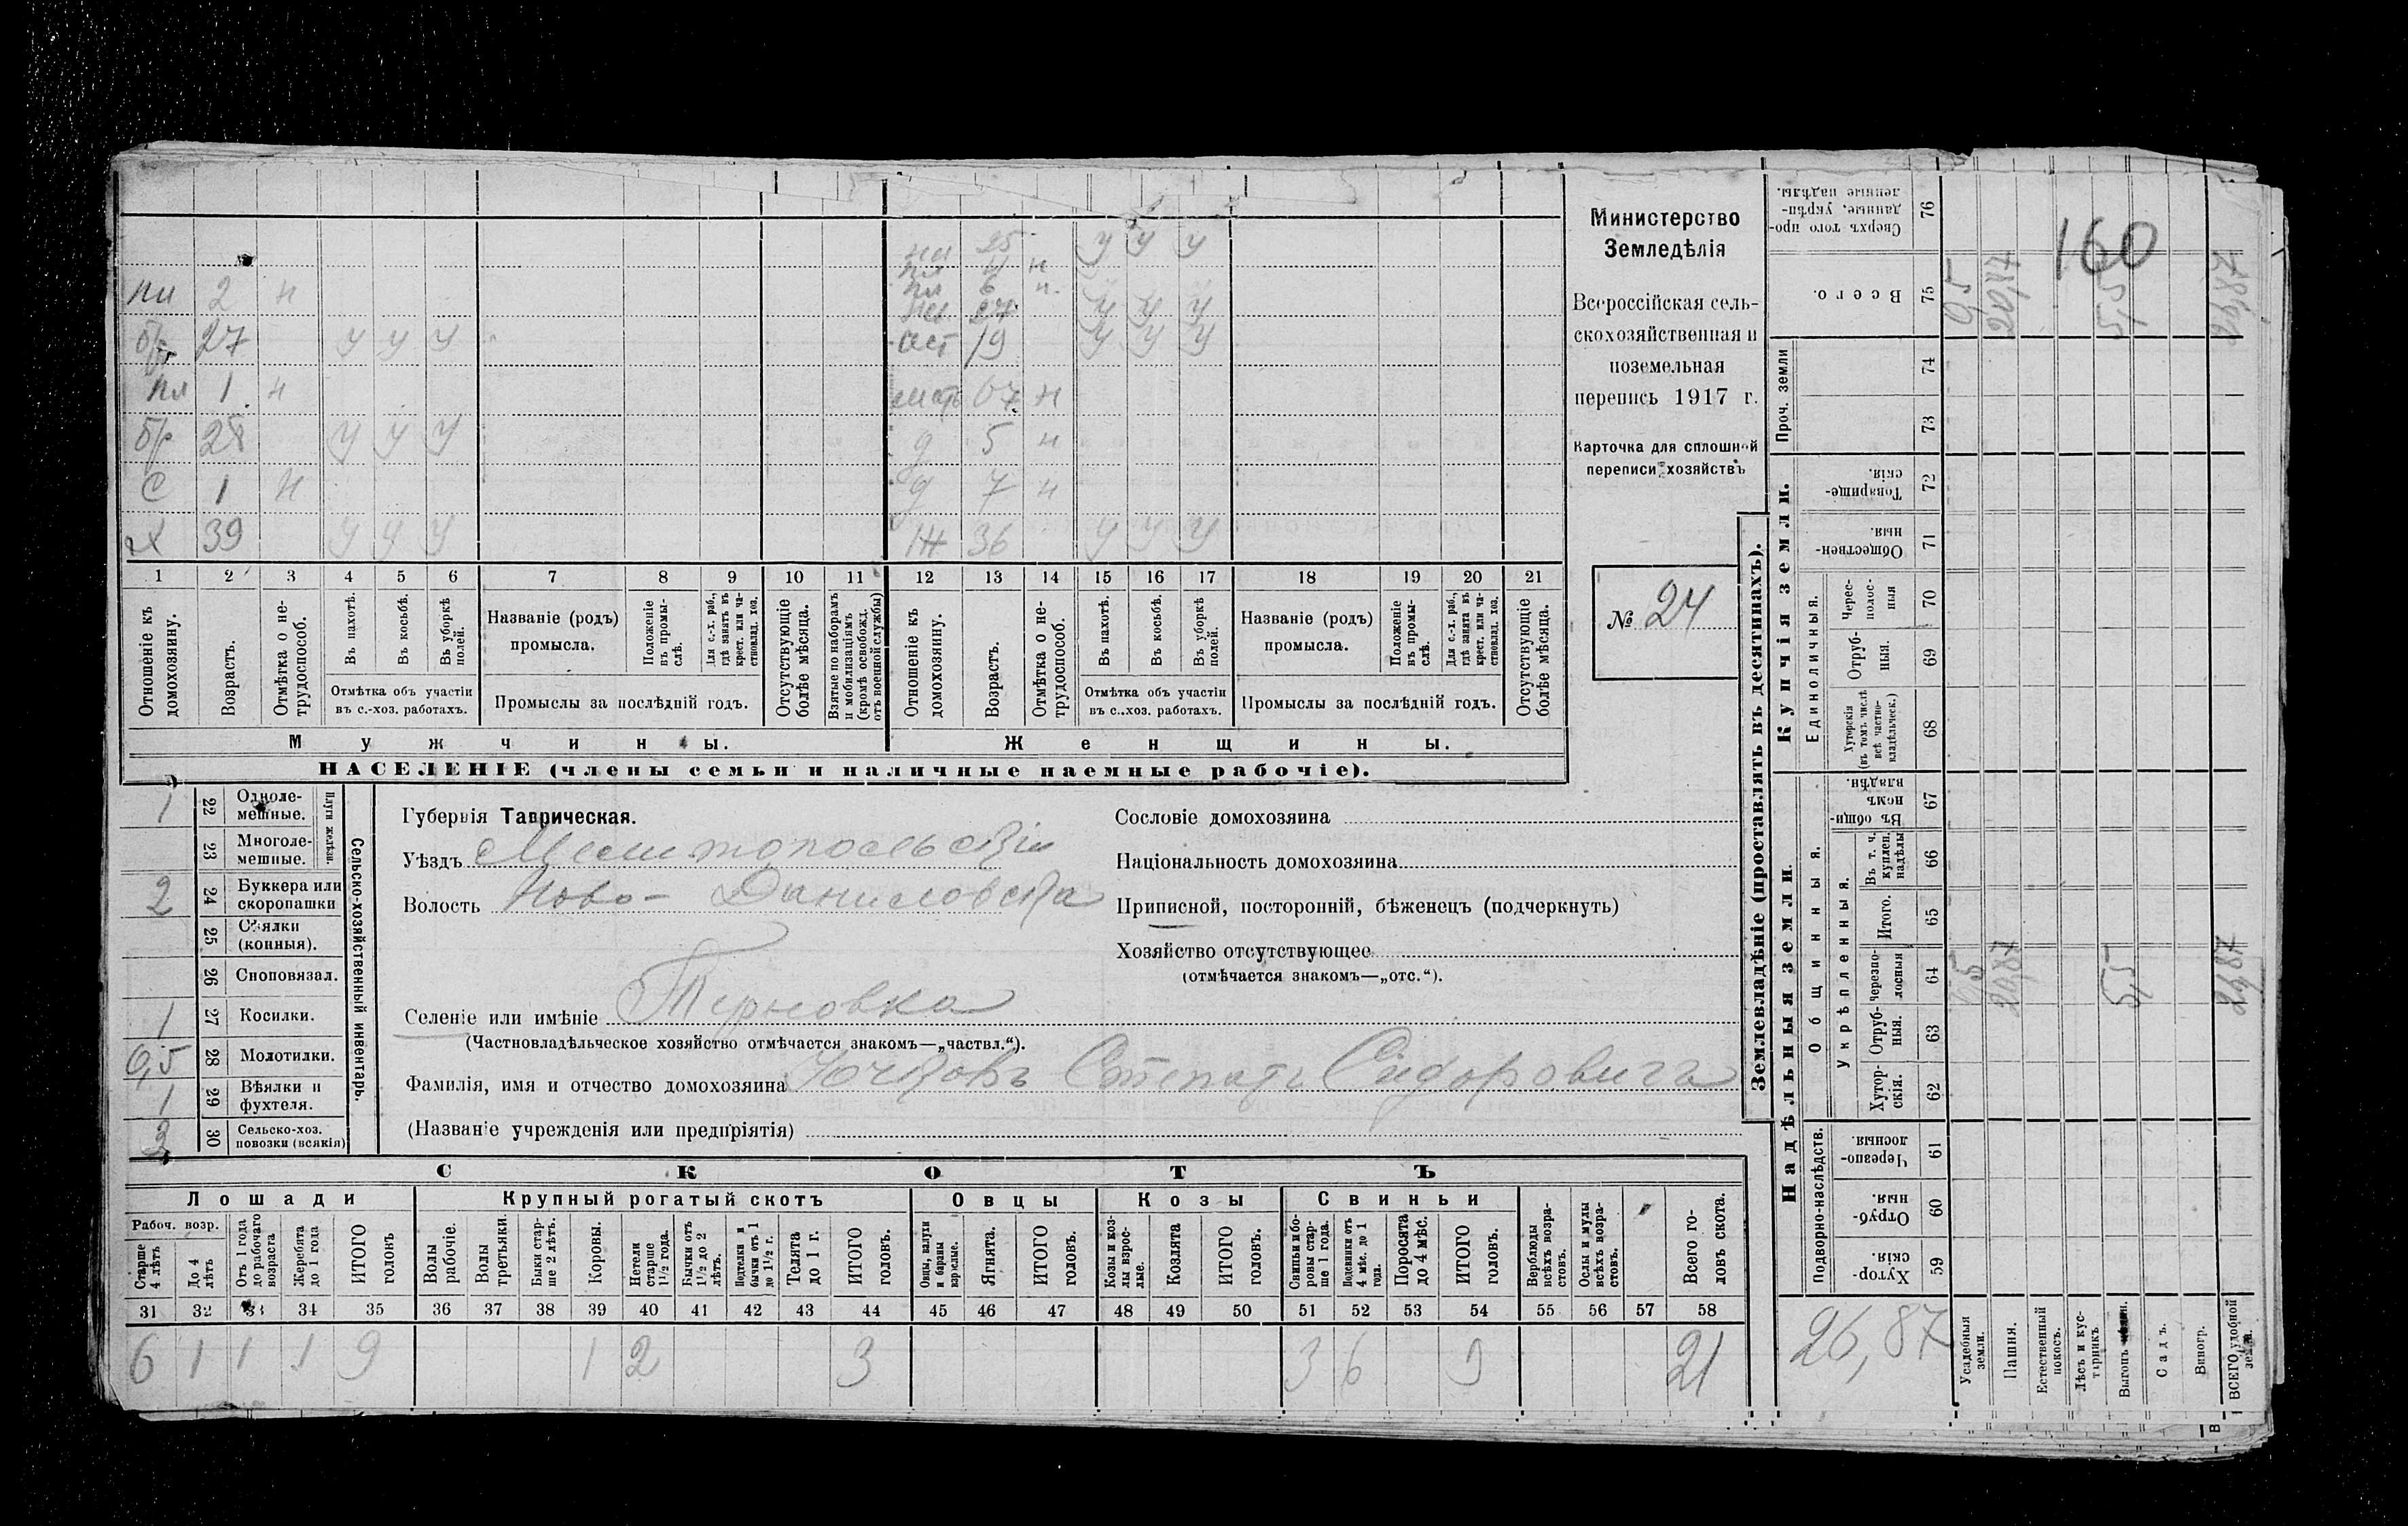 нп 25 У У У
пл 4 н
пл 2 н пл 6 н.
нев 27 У У У
бр 27 У У У сест 19 У У У
пл 1 н мать 67 н
бр 28 У У У д 5 н
С 1 Н д 7 н
Х 39 У У У Ж 36 У У У
1 2 3 4 5 6 7 8 9 10 11 12 13 14 15 16 17 18 19 20 21
Отношеніе къ домохозяину.
Возрастъ.
Отмѣтка о нетрудоспособ.
Въ пахотѣ.
Въ косьбѣ.
Въ уборкѣ полей.
Отмѣтка объ участіи
въ с.-хоз. работахъ.
Названіе (родъ)
промысла.
Положеніе въ промыслѣ.
Для с.-х. раб., гдѣ занятъ въ крест. или частновлад. хоз.
Промыслы за послѣдній годъ.
Отсутствующіе болѣе мѣсяца.
Взятые по наборамъ и мобилизаціямъ (кромѣ освобожд. отъ военной службы)
Отношеніе къ домохозяину.
Возрастъ.
Отмѣтка о нетрудоспособ.
Въ пахотѣ.
Въ косьбѣ.
Въ уборкѣ полей.
Отмѣтка объ участіи
въ с.-хоз. работахъ.
Названіе (родъ)
промысла.
Положеніе въ промыслѣ.
Для с.-х. раб., гдѣ занята въ крест. или частновлад. хоз.
Промыслы за послѣдній годъ.
Отсутствующіе болѣе мѣсяца.
Мужчины.
Женщины.
НАСЕЛЕНІЕ (члены семьи и наличные наемные рабочіе).
Министерство
Земледѣлія
Всероссійская сель-
скохозяйственная и
поземельная
перепись 1917 г.
Карточка для сплошной
переписи хозяйствъ
№ 24
Сельско-хозяйственный инвентарь.
Плуги желѣзн.
1 22 Одноле-
мешные.
23 Многоле-
мешные.
2 24 Буккера или
скоропашки
25 Сѣялки
(конныя).
26 Сноповязал.
1 27 Косилки.
0,5 28 Молотилки.
1 29 Вѣялки и
фухтеля.
30 Сельско-хоз.
повозки (всякія)
Губернія Таврическая.
Уѣздъ Мелитопольскій
Волость Ново-Даниловска
Селеніе или имѣніе Терновка
(Частновладѣльческое хозяйство отмѣчается знакомъ—„частвл.“).
Фамилія, имя и отчество домохозяина Степанъ Сидоровичъ
(Названіе учрежденія или предпріятія)
Сословіе домохозяина
Національность домохозяина
Приписной, посторонній, бѣженецъ (подчеркнуть)
Хозяйство отсутствующее
(отмѣчается знакомъ—„отс.“).
СКОТЪ
Лошади
Крупный рогатый скотъ
Овцы
Козы
Свиньи
Рабоч. возр.
Старше 4 лѣтъ
До 4 лѣтъ
Отъ 1 года до рабочаго возраста
Жеребята до 1 года
ИТОГО головъ
Волы рабочіе.
Волы третьяки.
Быки старше 2 лѣтъ.
Коровы.
Нетели старше 1½ года.
Бычки отъ 1½ до 2 лѣтъ.
Подтелки и бычки отъ 1 до 1½ г.
Телята до 1 г.
ИТОГО головъ.
Овцы, валухи и бараны взрослые.
Ягнята.
ИТОГО головъ.
Козы и козлы взрослые.
Козлята
ИТОГО головъ.
Свиньи и боровы старше 1 года.
Подсвинки отъ 4 мѣс. до 1 года.
Поросята до 4 мѣс.
ИТОГО головъ.
Верблюды всѣхъ возрастовъ.
Ослы и мулы всѣхъ возрастовъ.
Всего головъ скота.
31 32 33 34 35 36 37 38 39 40 41 42 43 44 45 46 47 48 49 50 51 52 53 54 55 56 57 58
6 1 1 1 9 1 2 3 3 6 9 21
Землевладѣніе (проставлять въ десятинахъ).
Купчія земли.
Надѣльныя земли.
Единоличныя.
Общинныя.
Укрѣпленныя.
Подворно-наслѣдств.
Проч. земли
Сверхъ того проданные, укрѣпленные надѣлы. 76
Всего. 75
74
73
Товарищескія. 72
Общественныя. 71
Чересполосныя 70
Отрубныя. 69
Хуторскія (въ томъ числѣ всѣ частновладѣльческ.) 68
Въ общинномъ владѣн. 67
Въ т. ч. куплен. надѣлы 66
Итого. 65
Черезполосныя 64
Отрубныя. 63
Хуторскія. 62
Черезполосныя. 61
Отрубныя. 60
Хуторскія 59
160
0,5 20,87 5,5 26,87
0,5 20,87 5,5 26,87
26,87
Усадебныя земли.
Пашня.
Естественный покосъ.
Лѣсъ и кустарникъ
Выгонъ
Садъ.
Виногр.
ВСЕГО удобной земли.